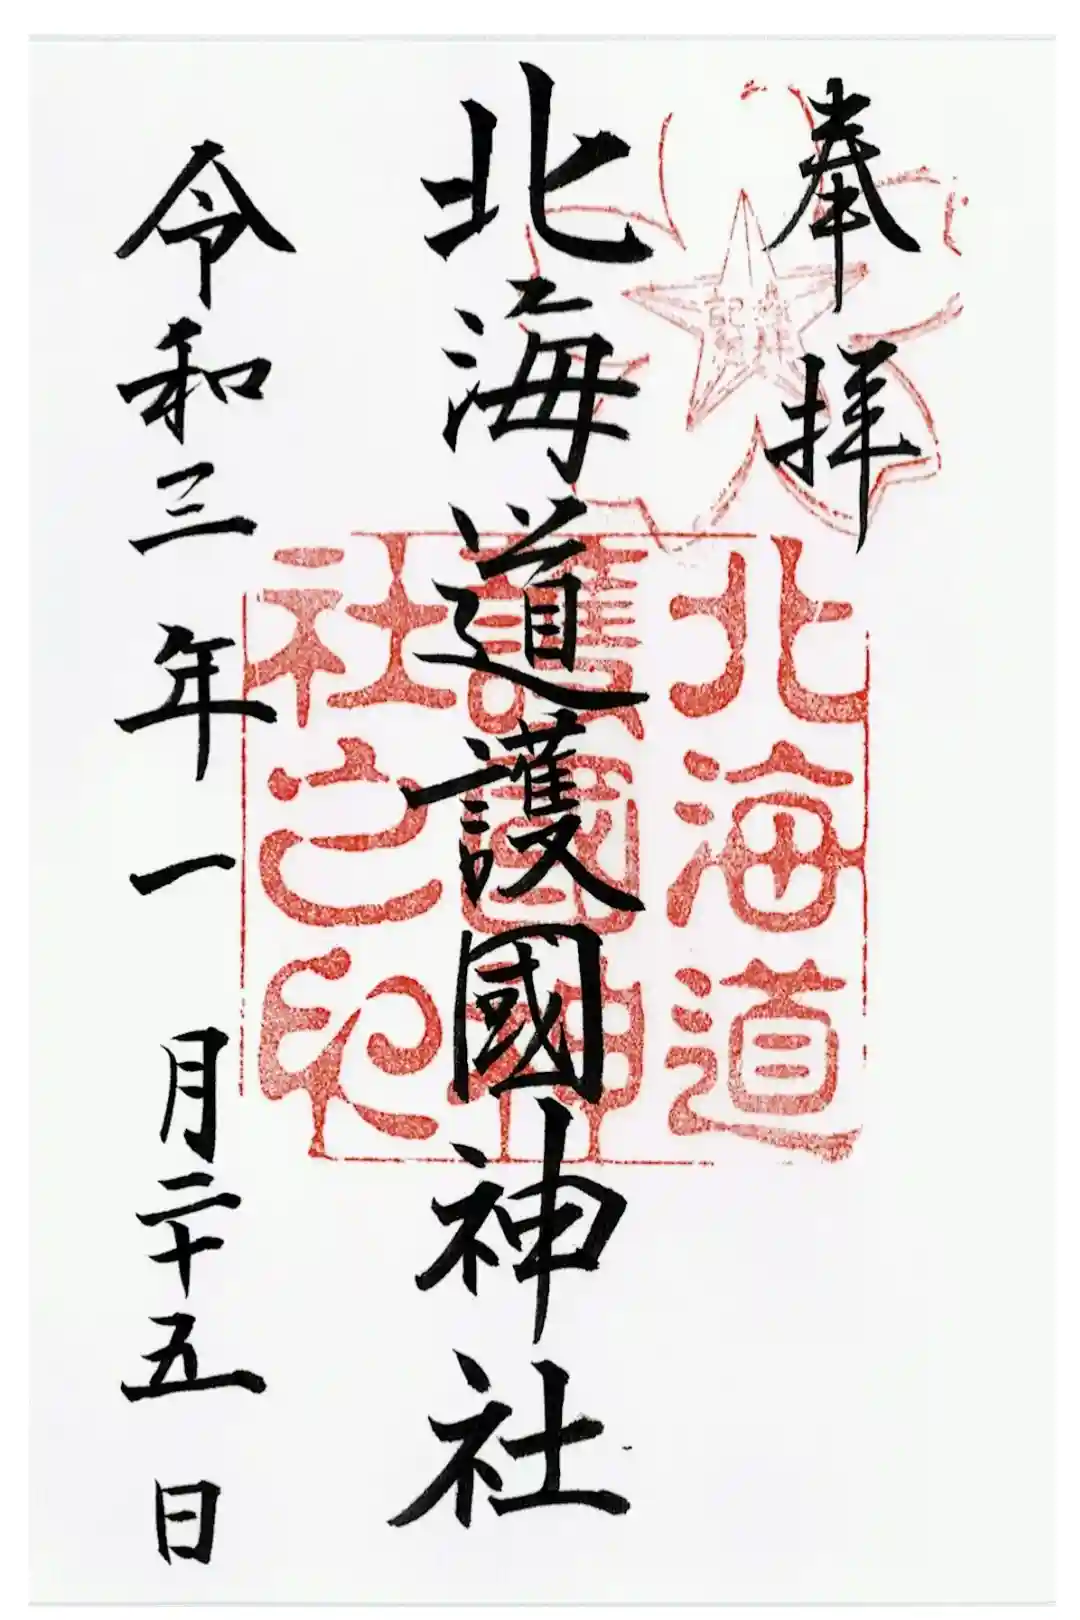 奉拝
北海道護國神社
令和三年一月二十五日
北海道
護國神
社之印